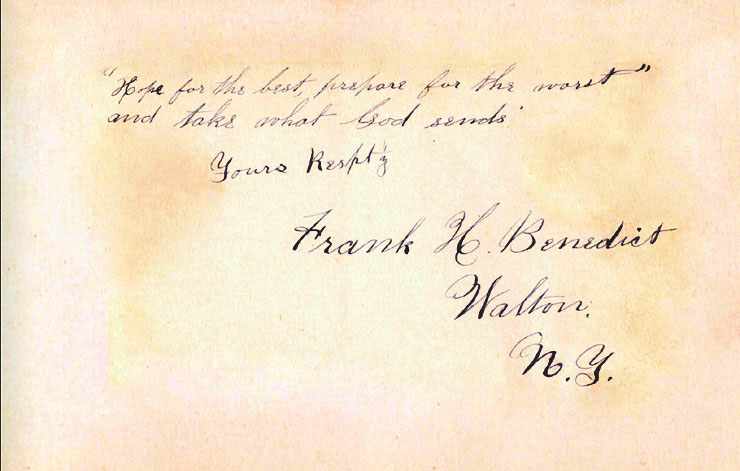 "Hope for the best, prepare for the worst"
and take what God sends.
Yours Respt'y
Frank H. Benedict
Walton,
N.Y.